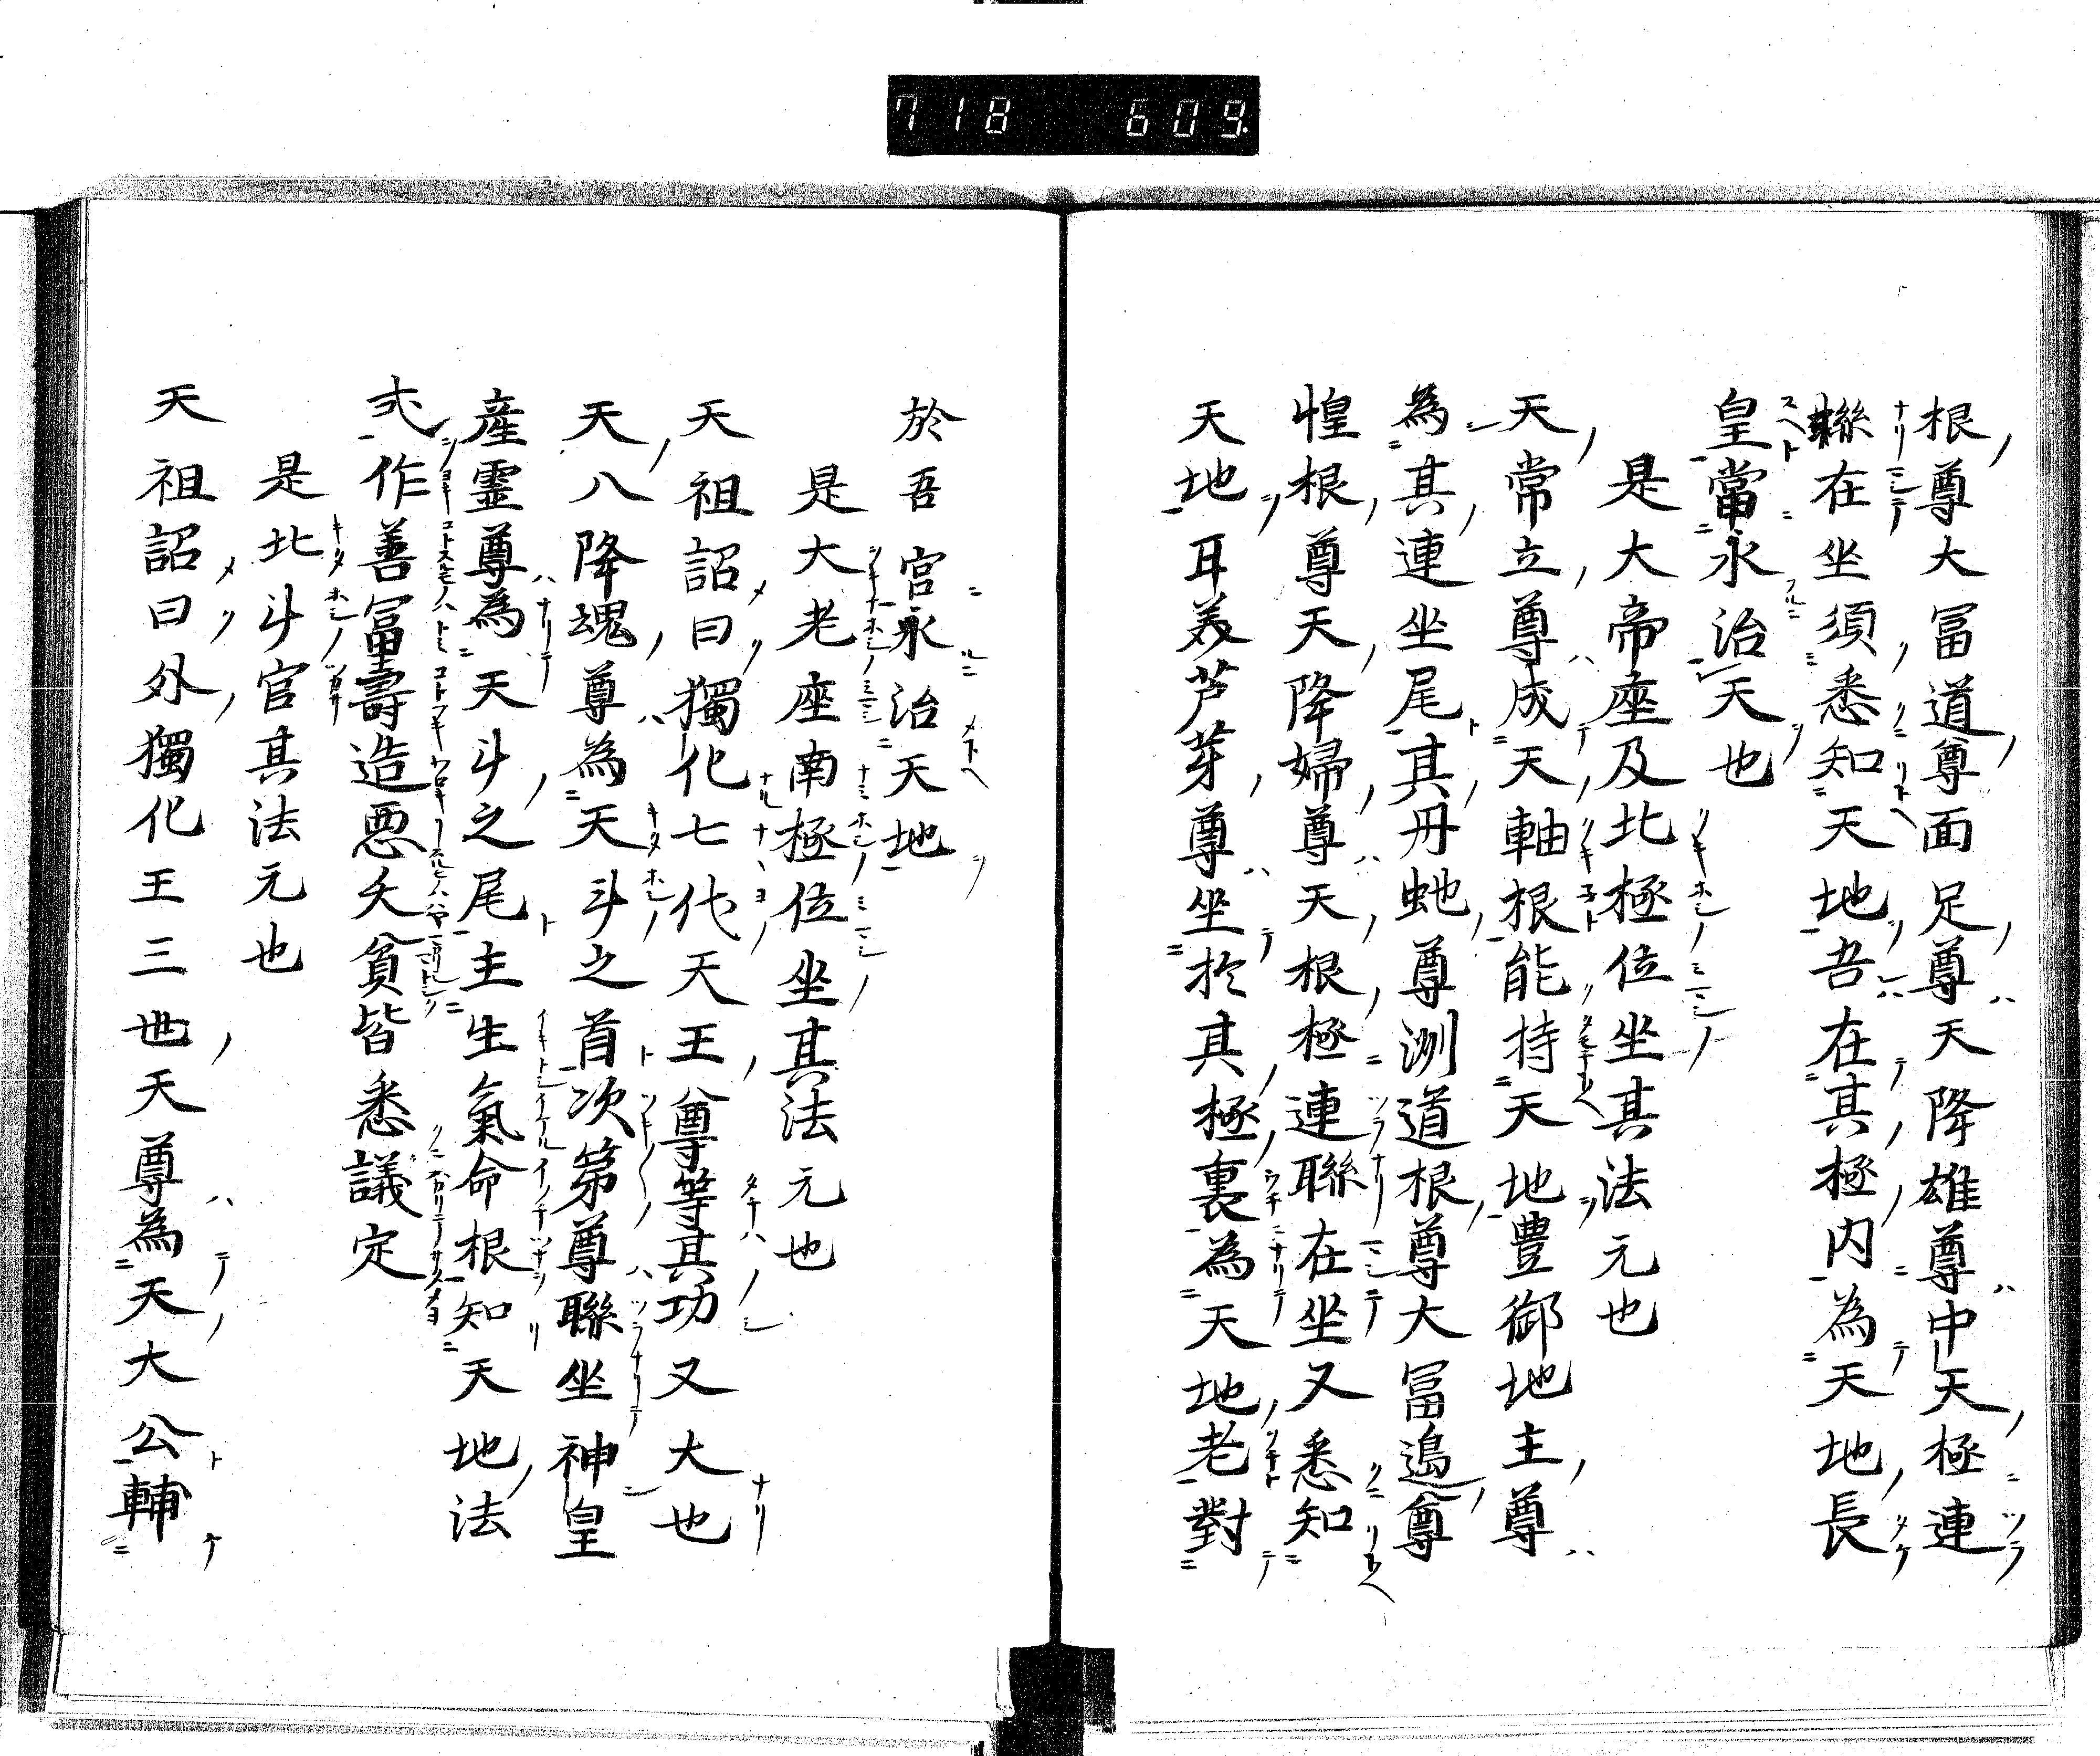 718 609.
根尊大冨道尊面足尊天降雄尊中天極連
聯在坐須悉知天地吾在其極内為天地長
皇當永治天也
是大帝座及北極位坐其法元也
天常立尊成天軸根能持天地豊御地主尊
為其連坐尾其丹虵尊渕道根尊大冨邉尊
惶根尊天降婦尊天根極連聯在坐又悉知
天地耳美芦芽尊坐於其極裏為天地老對
於吾宮永治天地
是大老座南極位坐其法元也
天祖詔曰獨化七代天王尊等其功又大也
天八降魂尊為天斗之首次第尊聯坐神皇
産霊尊為天斗之尾主生氣命根知天地法
式作善冨壽造悪夭貧皆悉議定
是北斗官其法元也
天祖詔曰外獨化王三世天尊為天大公輔